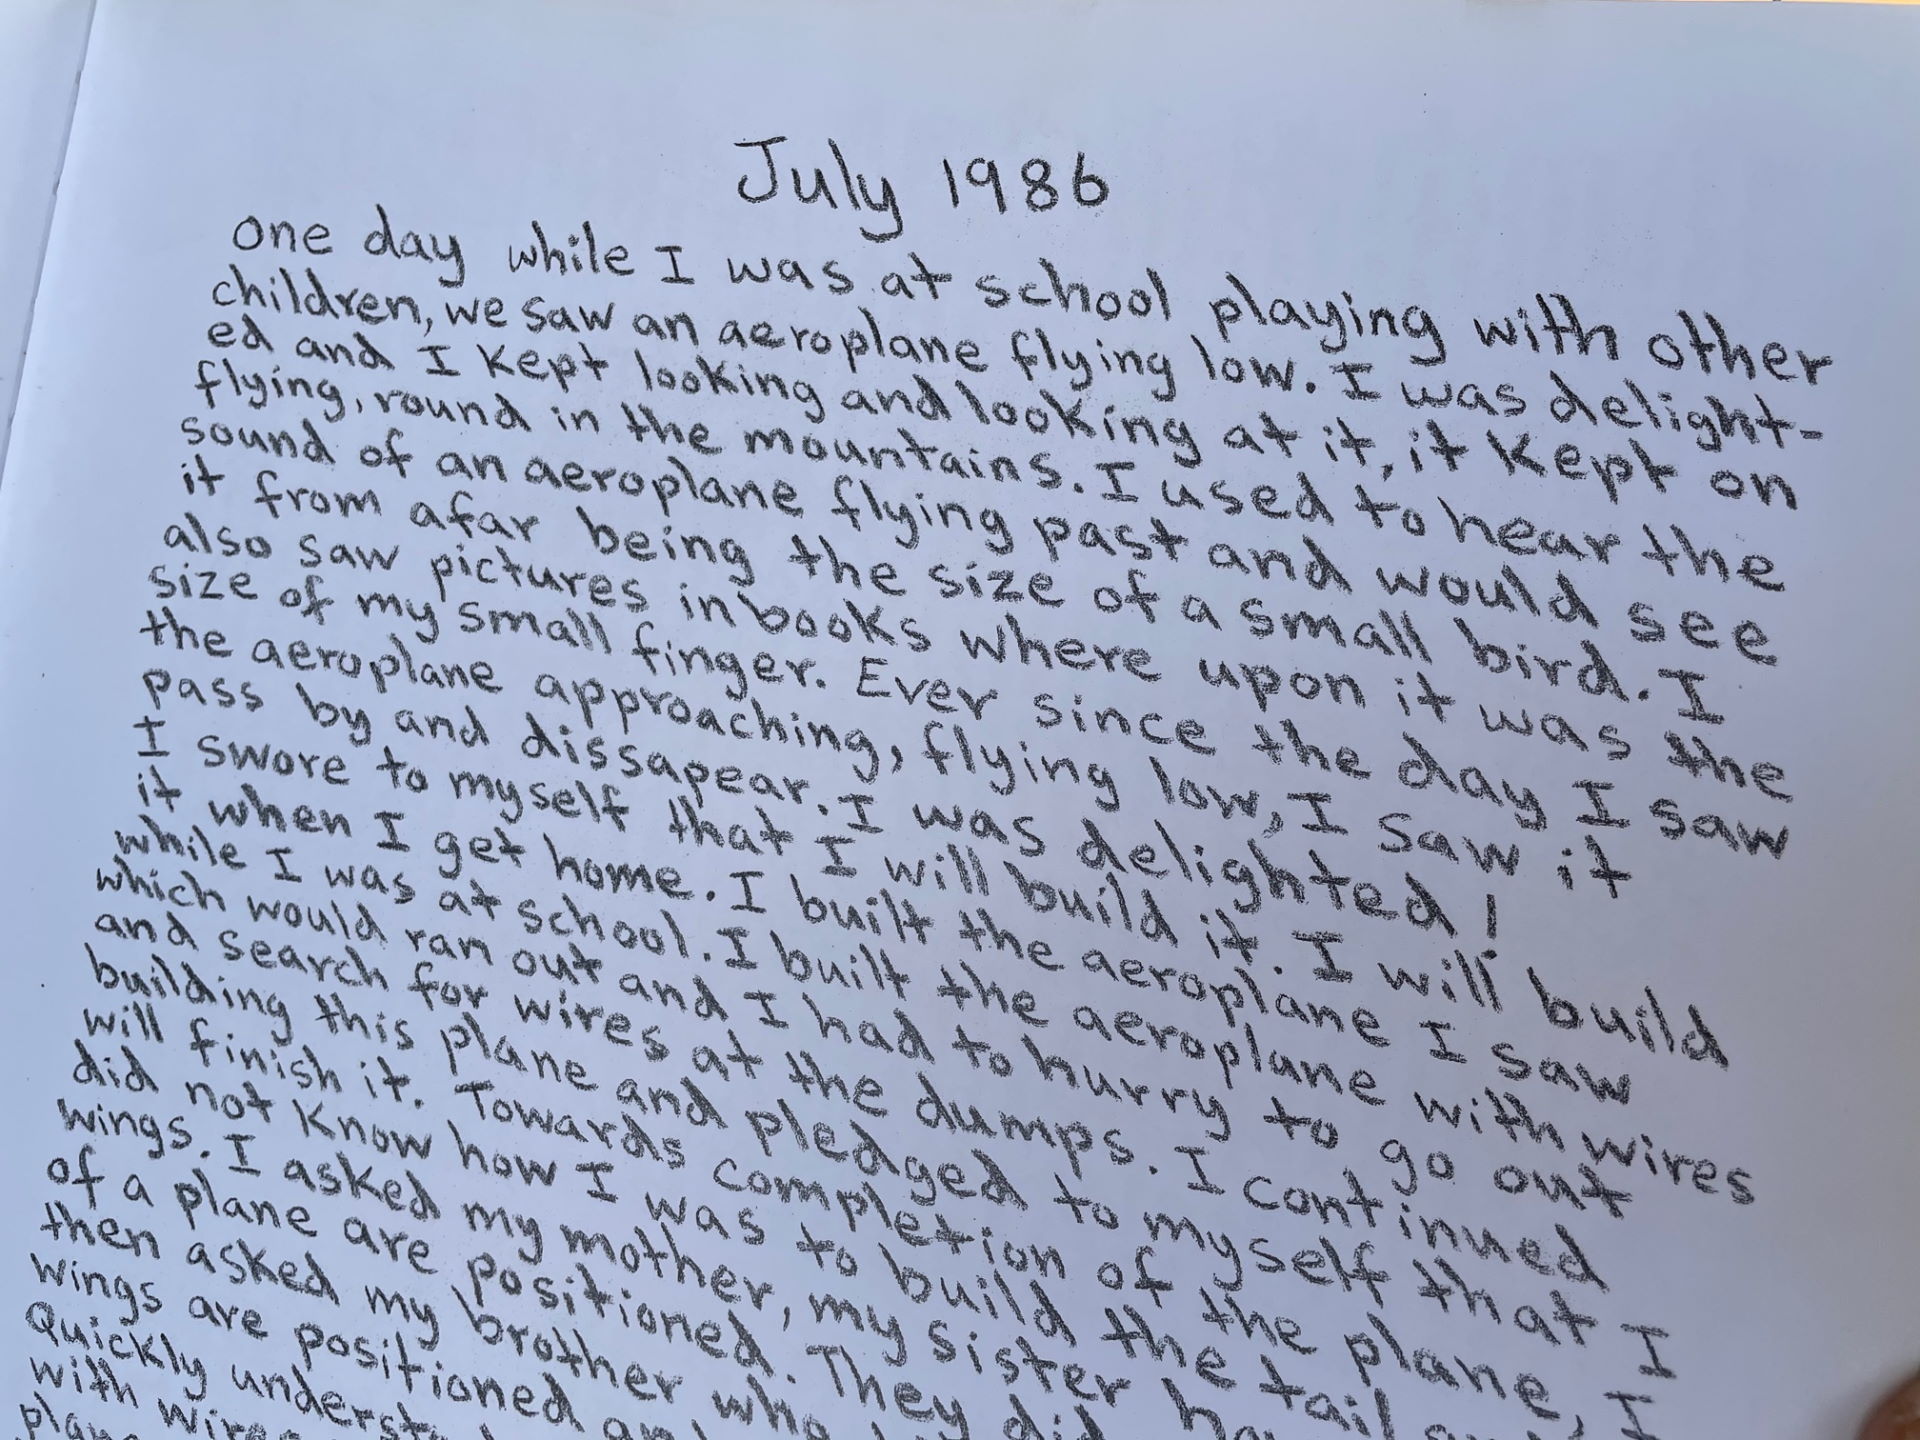 July 1986
one day while I was at school playing with other
children, we saw an aeroplane flying low. I was delight-
ed and I kept looking and looking at it, it kept on
flying, round in the mountains. I used to hear the
sound of an aeroplane flying past and would see
it from afar being the size of a small bird. I
also saw pictures in books where upon it was the
size of my small finger. Ever since the day I saw
the aeroplane approaching, flying low, I saw it
pass by and dissapear. I was delighted!
I swore to myself that I will build it. I will build
it when I get home. I built the aeroplane I saw
while I was at school. I built the aeroplane with wires
which would ran out and I had to hurry to go out
and search for wires at the dumps. I continued
building this plane and pledged to myself that I
will finish it. Towards completion of the plane, I
did not know how I was to build the tail
wings. I asked my mother, my sister
of a plane are positioned. They did
then asked my brother who
wings are positioned
Quickly
with wires